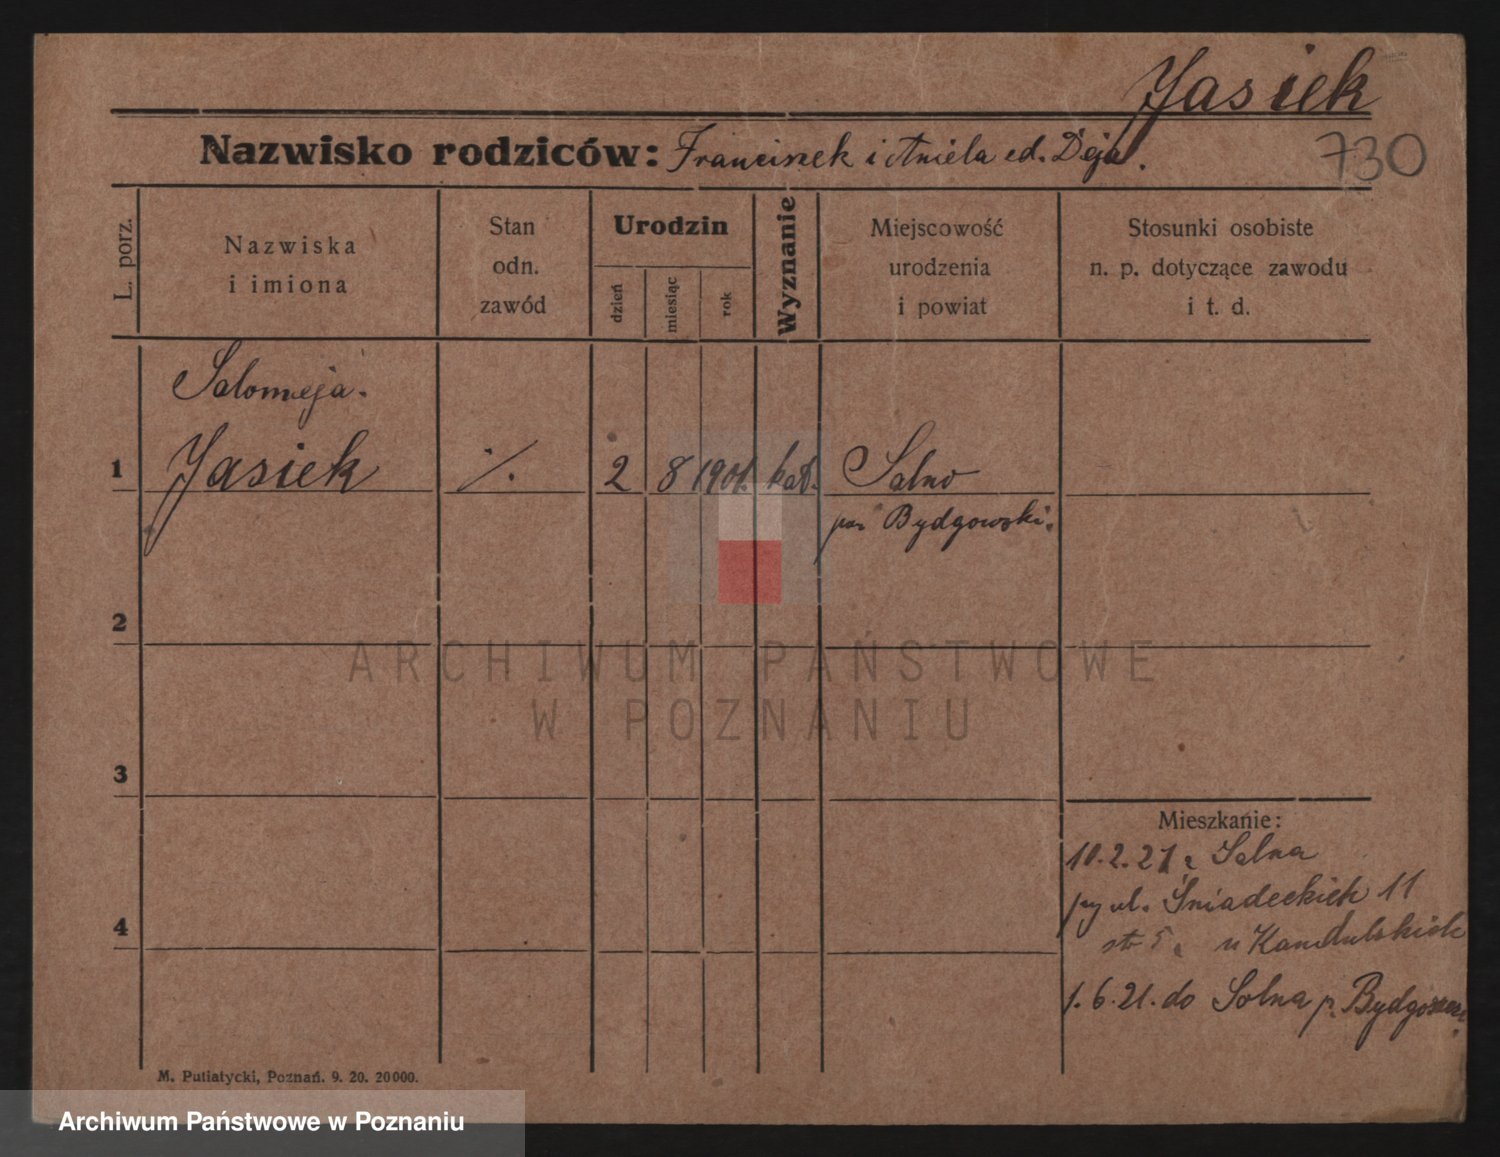 Jasiek
730
Nazwisko rodziców: Franciszek i Aniela ed. Deja.
L. porz.
Nazwiska
i imiona
Stan
odn.
zawód
Urodzin
dzień
miesiąc
rok
Wyznanie
Miejscowość
urodzenia
i powiat
Stosunki osobiste
n. p. dotyczące zawodu
i t. d.
Salomeja.
1 Jasiek ./. 2 8 1901. kat. Salno
Bydgowski.
2
ARCHIWUM PAŃSTWOWE
W POZNANIU
3
Mieszkanie:
10.2.21 z Salna
ul. Śniadeckich 11
u Kamdulskich
4
1.6.21. do Solna p.
M. Putiatycki, Poznań. 9. 20. 20000.
Archiwum Państwowe w Poznaniu